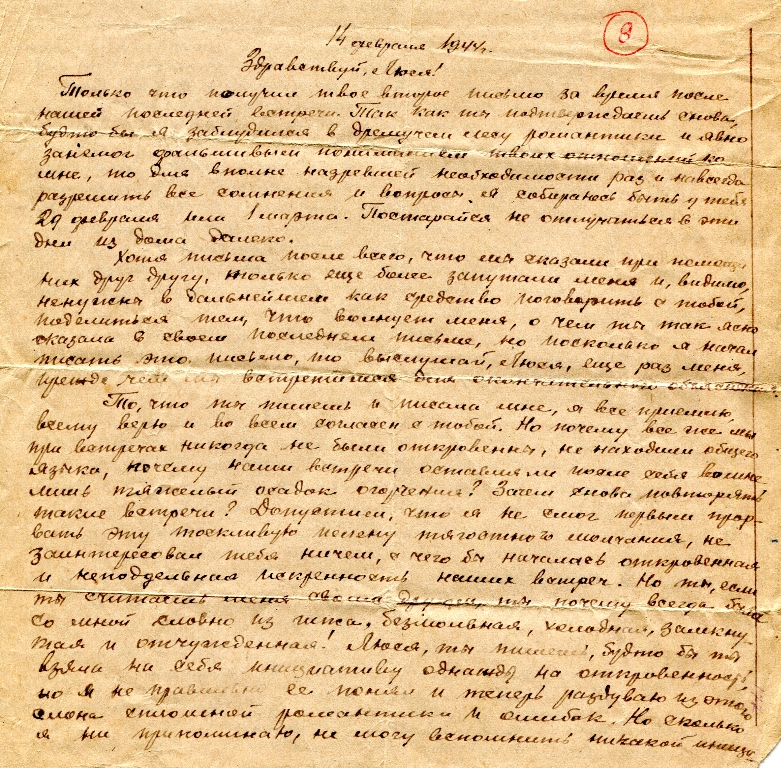 14 февраля 1944г.
8
Здравствуй, Люся!
Только что получил твое второе письмо за время после
нашей последней встречи. Так как ты подтверждаешь снова,
будто бы я заблудился в дремучем лесу романтики и явно
занемог фальшивым пониманием твоих отношений ко
мне, то для вполне назревшей необходимости раз и навсегда
разрешить все сомнения и вопросы я собираюсь быть у тебя
29 февраля или 1 марта. Постарайся не отлучаться в эти
дни из дома далеко.
Хотя письма после всего, что мы сказали при помощи
них друг другу, только еще более запутали меня и, видимо,
ненужны в дальнейшем как средство поговорить с тобой,
поделиться тем, что волнует меня, о чем ты так ясно
сказала в своем последнем письме, но поскольку я начал
писать это письмо, то выслушай, Люся, еще раз меня,
прежде чем мы встретимся для окончательного
То, что ты пишешь и писала мне, я все приемлю,
всему верю и во всем согласен с тобой. Но почему все же мы
при встречах никогда не были откровенны, не находили общего
языка, почему наши встречи оставляли после себя во мне
лишь тяжелый осадок огорчения? Зачем снова повторять
такие встречи? Допустим, что я не смог первым прор-
вать эту тоскливую пелену тягостного молчания, не
заинтересовал тебя ничем, с чего бы началась откровенная
и неподдельная искренность наших встреч. Но ты, если
ты считаешь меня своим другом, ты почему всегда была
со мной словно из гипса, безмолвная, холодная, замкну-
тая и отчужденная! Люся, ты пишешь, будто бы ты
взяла на себя инициативу однажды на откровенность,
но я не правильно ее понял и теперь раздуваю из этого
слона сплошной романтики и ошибок. Но сколько
я ни припоминаю, не могу вспомнить никакой иници-